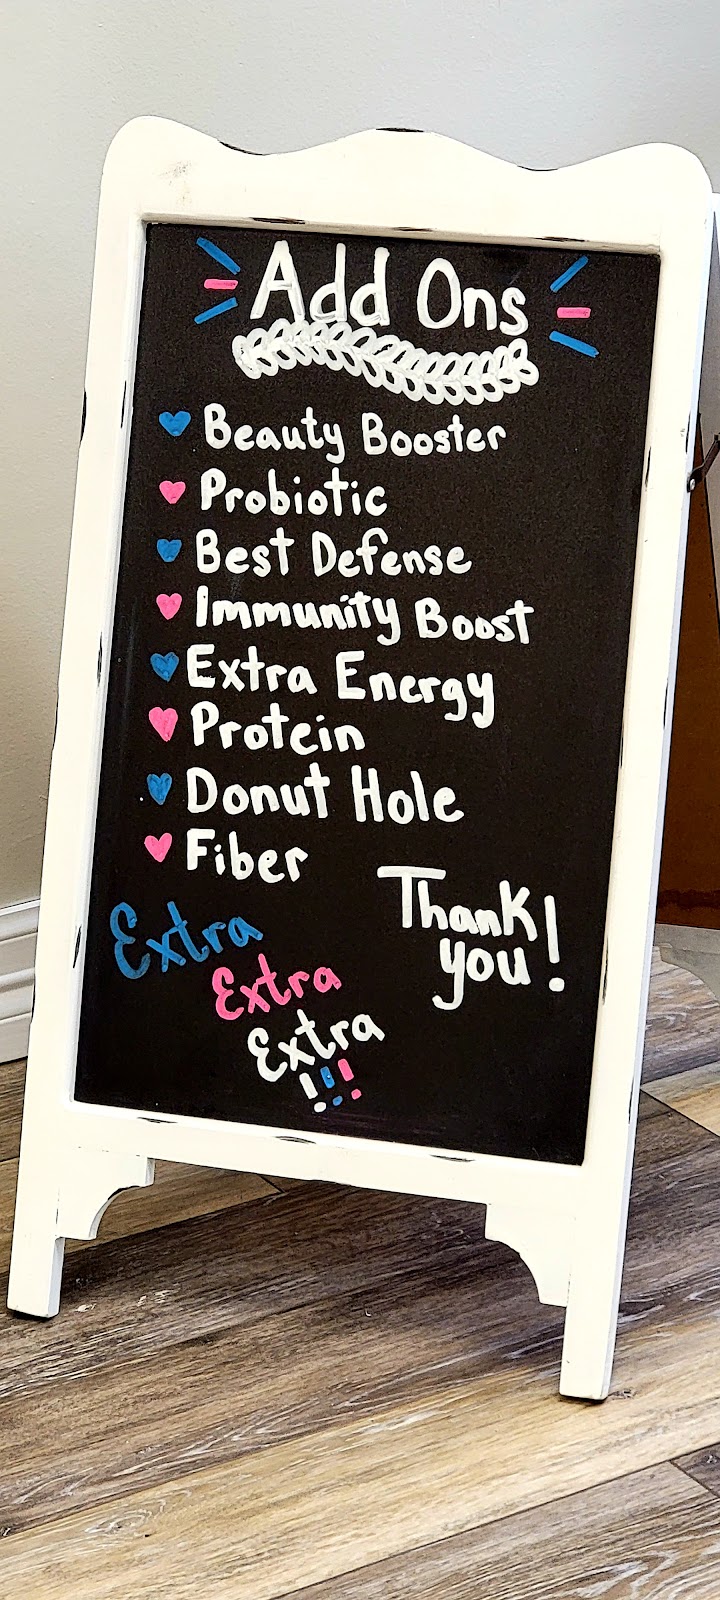 Add Ons
Beauty Booster
Probiotic
Best Defense
Immunity Boost
Extra Energy
Protein
Donut Hole
Fiber
Thank
you!
Extra
Extra
Extra
!!!